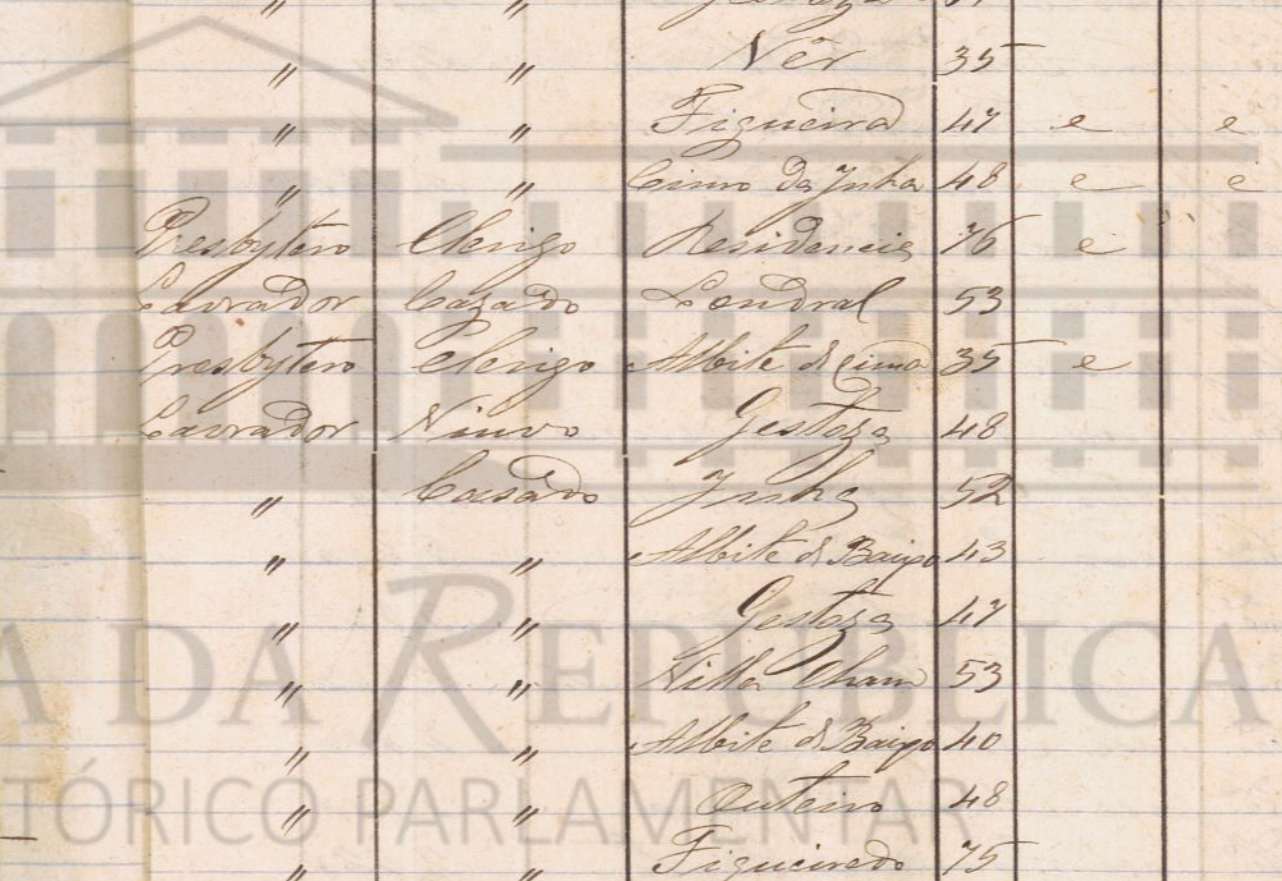 " "
" " Nêr 35
" " Figueira 47 e e
" " Cimo da Junha 48 e e
Presbytero Clerigo Residencia 76 e
Lavrador Cazado Londral 53
Presbytero Clerigo Albite de Cima 35 e
Lavrador Viuvo Gestoza 48
" Casado Junha 52
" " Albite de Baixo 43
" " Gestoza 47
" " Villa Cham 53
" " Albite de Baixo 40
" " Outeiro 48
" " Figueiredo 75
A DA REPÚBLICA
TÓRICO PARLAMENTAR